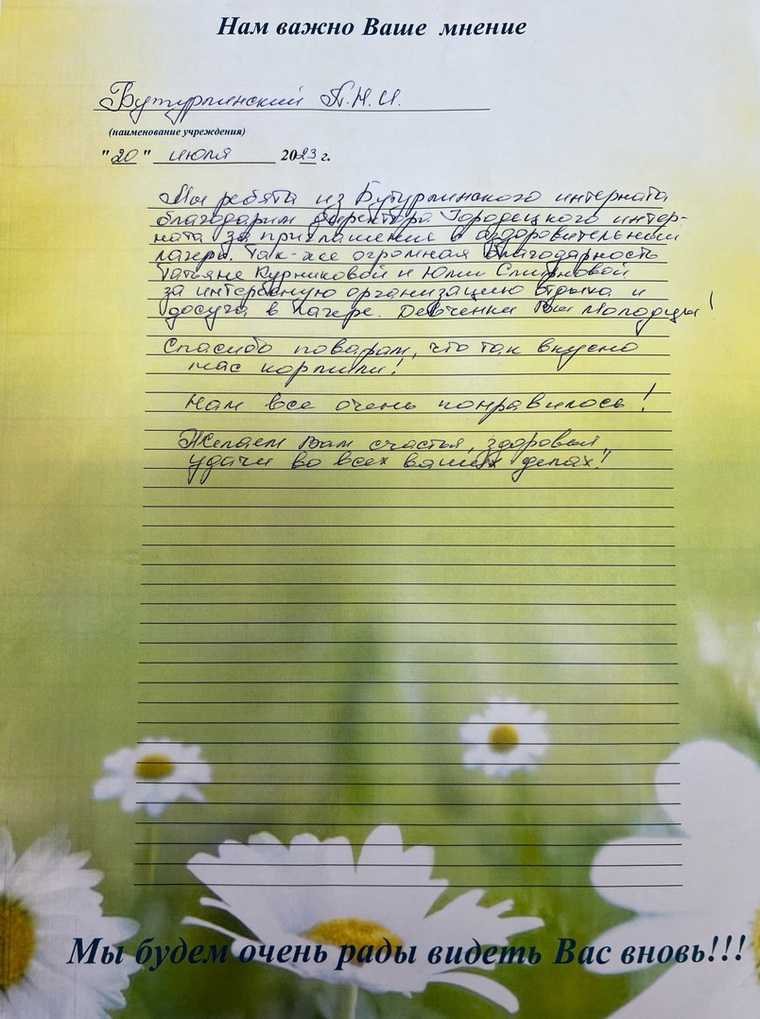 Нам важно Ваше мнение
Бутурлинский П.Н.И.
(наименование учреждения)
"20" июля 2023 г.
Мы ребята из Бутурлинского интерната
благодарим директора Городецкого интер-
ната за приглашение в оздоровительный
лагерь. Так-же огромная благодарность
Татьяне Курниковой и Юлии Смирновой
за интересную организацию отдыха и
досуга в лагере. Девченки Вы Молодцы!
Спасибо поварам, что так вкусно
нас кормили!
Нам все очень понравилось!
Желаем Вам счастья, здоровья,
удачи во всех ваших делах!
Мы будем очень рады видеть Вас вновь!!!